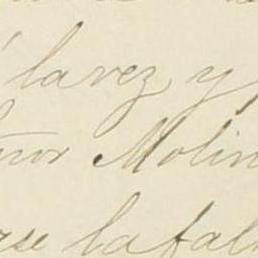 la vez y
Molin
se la fal